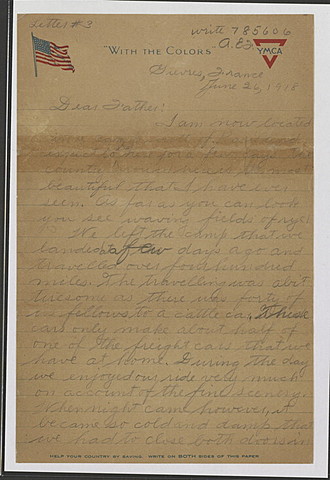 Letter #3
write 785606
A.E.F.
"WITH THE COLORS"
YMCA
Gievres, France
June 26, 1918
Dear Father:
I am now located
for a few days. The
country
beautiful that I have ever
seen. As far as you can look
you see waving fields of rye.
We left the camp that we
landed at a few days ago and
travelled over four hundred
miles. The travelling was
tiresome as there was forty of
us fellows to a cattle car. These
cars only make about half of
one of the freight cars that we
have at home. During the day
we enjoyed our ride very much
on account of the fine scenery.
When night came however, it
became so cold and damp that
we had to close both doors on
HELP YOUR COUNTRY BY SAVING. WRITE ON BOTH SIDES OF THIS PAPER